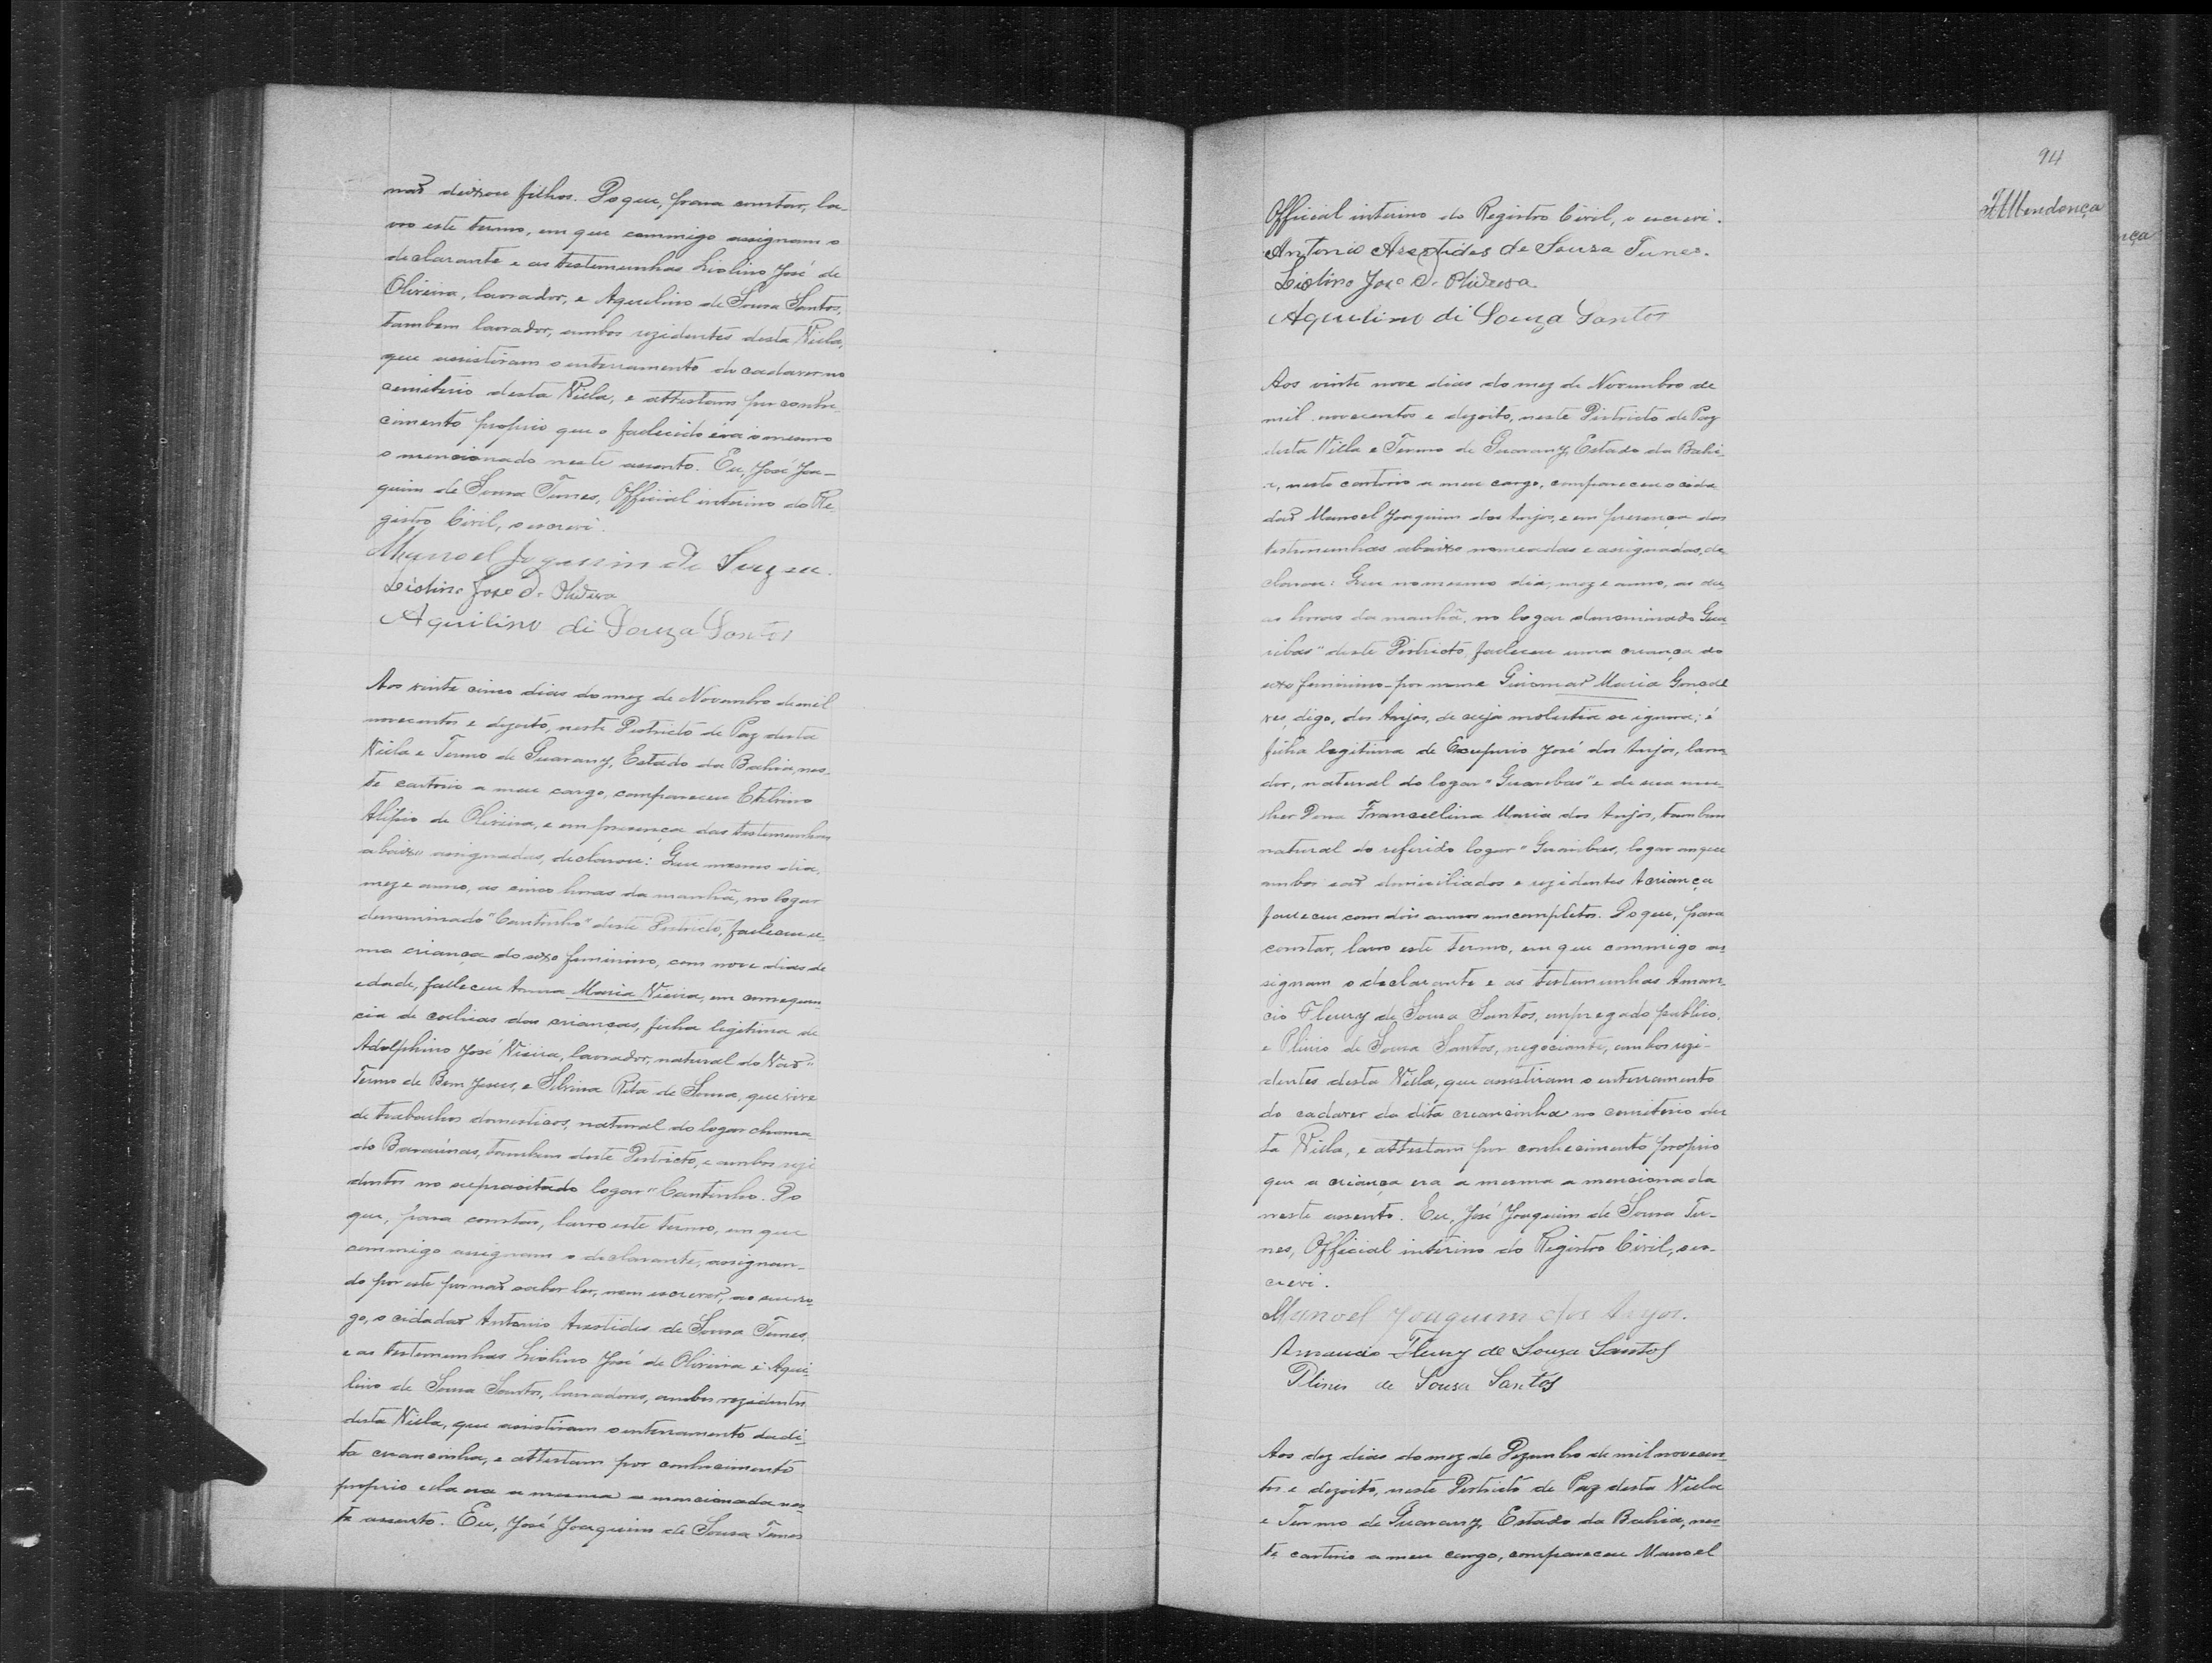 não deixou filhos. Do que, para constar, la-
vro este termo, em que commigo assignam o
declarante e as testemunhas Liolino José de
Oliveira, lavrador, e Aquilino de Sousa Santos,
tambem lavrador, ambos rezidentes desta Villa,
que assistiram o enterramento do cadaver no
cemiterio desta Villa, e attestam por conhe-
cimento proprio que o fallecido éra o mesmo
o mencionado neste assento. Eu, José Joa-
quim de Sousa Tunes, Official interino do Re-
gistro Civil, o escrevi.
Manoel Joquim de Suza
Liolino Jose d. Olivera
Aquilino di Souza Santos
Aos vinte cinco dias do mez de Novembro de mil
novecentos e dezoito, neste Districto de Paz desta
Villa e Termo de Guarany, Estado da Bahia, nes-
te cartorio a meu cargo, compareceu
Alipio de Oliveira, e em presença das testemunhas
abaixo assignadas, declarou: Que mesmo dia,
mez e anno, as cinco horas da manhã, no logar
denominado "Cantinho" deste Districto, falleceu u-
ma criança do sexo feminino, com nove dias de
edade, falleceu Anna Maria Vieira, em consequen-
cia de colicas das crianças, filha legitima de
Adolphino José Vieira, lavrador, natural do
Termo de Bom Jesus, e Silvina Rita de Sousa, que vive
de trabalhos domesticos, natural do logar chama-
do Baraúnas, tambem deste Districto, e ambos rezi-
dentes no supracitado logar "Cantinho. Do
que, para constar, lavro este termo, em que
commigo assignam o declarante, assignan-
do por este por não saber ler, nem escrever, ao seu ro-
go, o cidadão Antonio Arestides de Sousa Tunes,
e as testemunhas Liolino José de Oliveira e Aqui-
lino de Sousa Santos, lavradores, ambos rezidentes
desta Villa, que assistiram o enterramento da di-
ta creancinha, e attestam por conhecimento
proprio ella era a mesma a mencionada nes-
te assento. Eu, José Joaquim de Sousa Tunes
94
Mendonça
Official interino do Registro Civil, o escrevi.
Antonio Arestides de Souza Tunes.
Liolino Jose d. Olivera
Aquilino di Souza Santos
Aos vinte nove dias do mez de Novembro de
mil novecentos e dezoito, neste Districto de Paz
desta Villa e Termo de Guarany, Estado da Bahi-
a, neste cartorio a meu cargo, compareceu o cida-
dão Manoel Joaquim dos Anjos, e em presença das
testemunhas abaixo nomeadas e assignadas, de-
clarou: Que no mesmo dia, mez e anno, as du-
as horas da manhã, no logar denominado Gua-
ribas" deste Districto, falleceu uma criança do
sexo feminino por nome Guiomar Maria Gonçal-
ves, digo, dos Anjos, de cuja molestia se ignora; é
filha legitima de Exupirio José dos Anjos, lavra-
dor, natural do logar "Guaribas" e de sua mu-
lher Dona Francellina Maria dos Anjos, tambem
natural do referido logar "Guaribas, logar em que
ambos são domiciliados e rezidentes. A criança
falleceu com dois annos incompletos. Do que, para
constar, lavro este termo, em que commigo as-
signam o declarante e as testemunhas Aman-
cio Fleury de Sousa Santos, empregado publico,
e Plinio de Sousa Santos, negociante, ambos rezi-
dentes desta Villa, que assistiram o enterramento
do cadaver da dita creancinha no cemiterio des-
ta Villa, e attestam por conhecimento proprio
que a criança era a mesma a mencionada
neste assento. Eu, José Joaquim de Sousa Tu-
nes, Official interino do Registro Civil, o es-
crevi.
Manoel Joaquim dos Anjos.
Amancio Fleury de Souza Santos
Plinio de Sousa Santos
Aos dez dias do mez de Dezembro de mil novecen-
tos e dezoito, neste Districto de Paz desta Villa
e Termo de Guarany, Estado da Bahia, nes-
te cartorio a meu cargo, compareceu Manoel